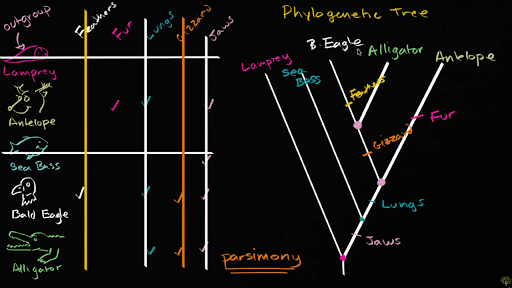 outgroup
Feathers
Fur
Lungs
Gizzard
Jaws
Lamprey
Antelope
Sea Bass
Bald Eagle
Alligator
parsimony
Phylogenetic Tree
Lamprey
Sea
Bass
B. Eagle
Alligator
Antelope
Feathers
Fur
Gizzard
Lungs
Jaws